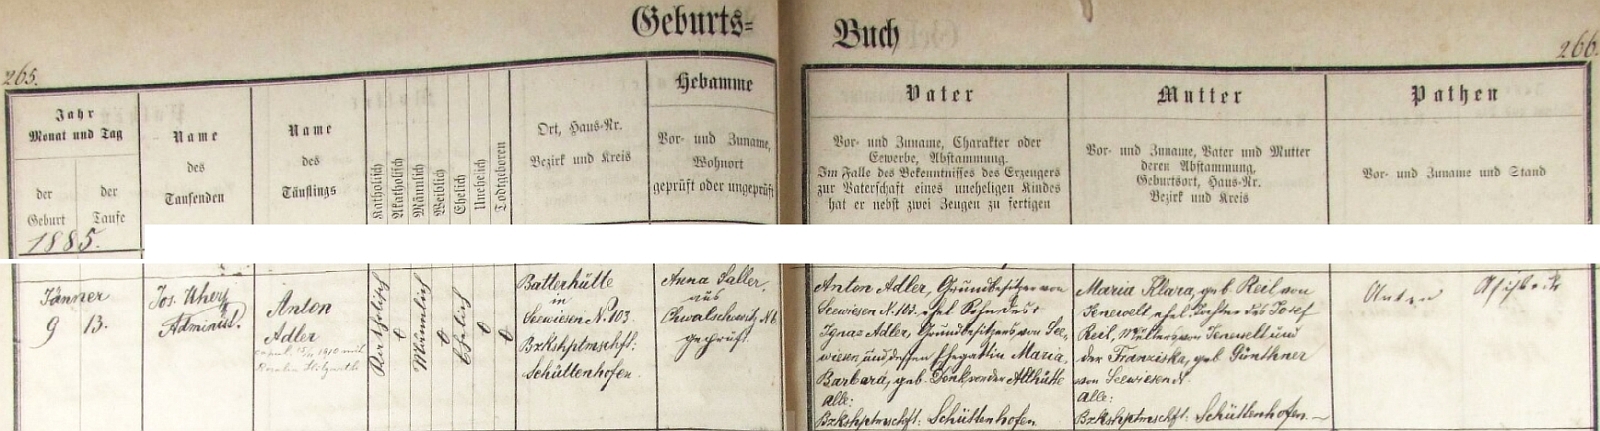 Geburts=
Buch
265.
266.
Jahr
Monat und Tag
der
Geburt
der
Taufe
Name
des
Taufenden
Name
des
Täuflings
Katholisch
Akatholisch
Männlich
Weiblich
Ehelich
Unehelich
Todtgeboren
Ort, Haus-Nr.
Bezirk und Kreis
Hebamme
Vor- und Zuname,
Wohnort
geprüft oder ungeprüft
Vater
Vor- und Zuname, Charakter oder
Gewerbe, Abstammung.
Im Falle des Bekenntnisses des Erzeugers
zur Vaterschaft eines uneheligen Kindes
hat er nebst zwei Zeugen zu fertigen
Mutter
Vor- und Zuname, Vater und Mutter
deren Abstammung,
Geburtsort, Haus-Nr.
Bezirk und Kreis
Pathen
Vor- und Zuname und Stand
1885.
Jänner
9 13.
Jos. Uherj
Administ.
Anton
Adler
1910 mit
Katholisch
0
Männlich
0
Ehelich
0
0
Batterhütte
in
Seewiesen No 103.
Bzkshptmschft:
Schüttenhofen.
Anna Saller,
aus
geprüft.
Anton Adler, Grundbesitzer von
Seewiesen N. 103. ehel. Sohn des
Ignaz Adler, Grundbesitzers von See-
wiesen und dessen Ehegattin Maria
Barbara, geb. von der Althütte
Alle:
Bzkshptmschft: Schüttenhofen
Maria Klara, geb. Reil von
ehel. Tochter des Josef
Reil, Müllers von und
der Franziska, geb. Günthner
von Seewiesen.
Alle:
Bzkshptmschft: Schüttenhofen.
Anton